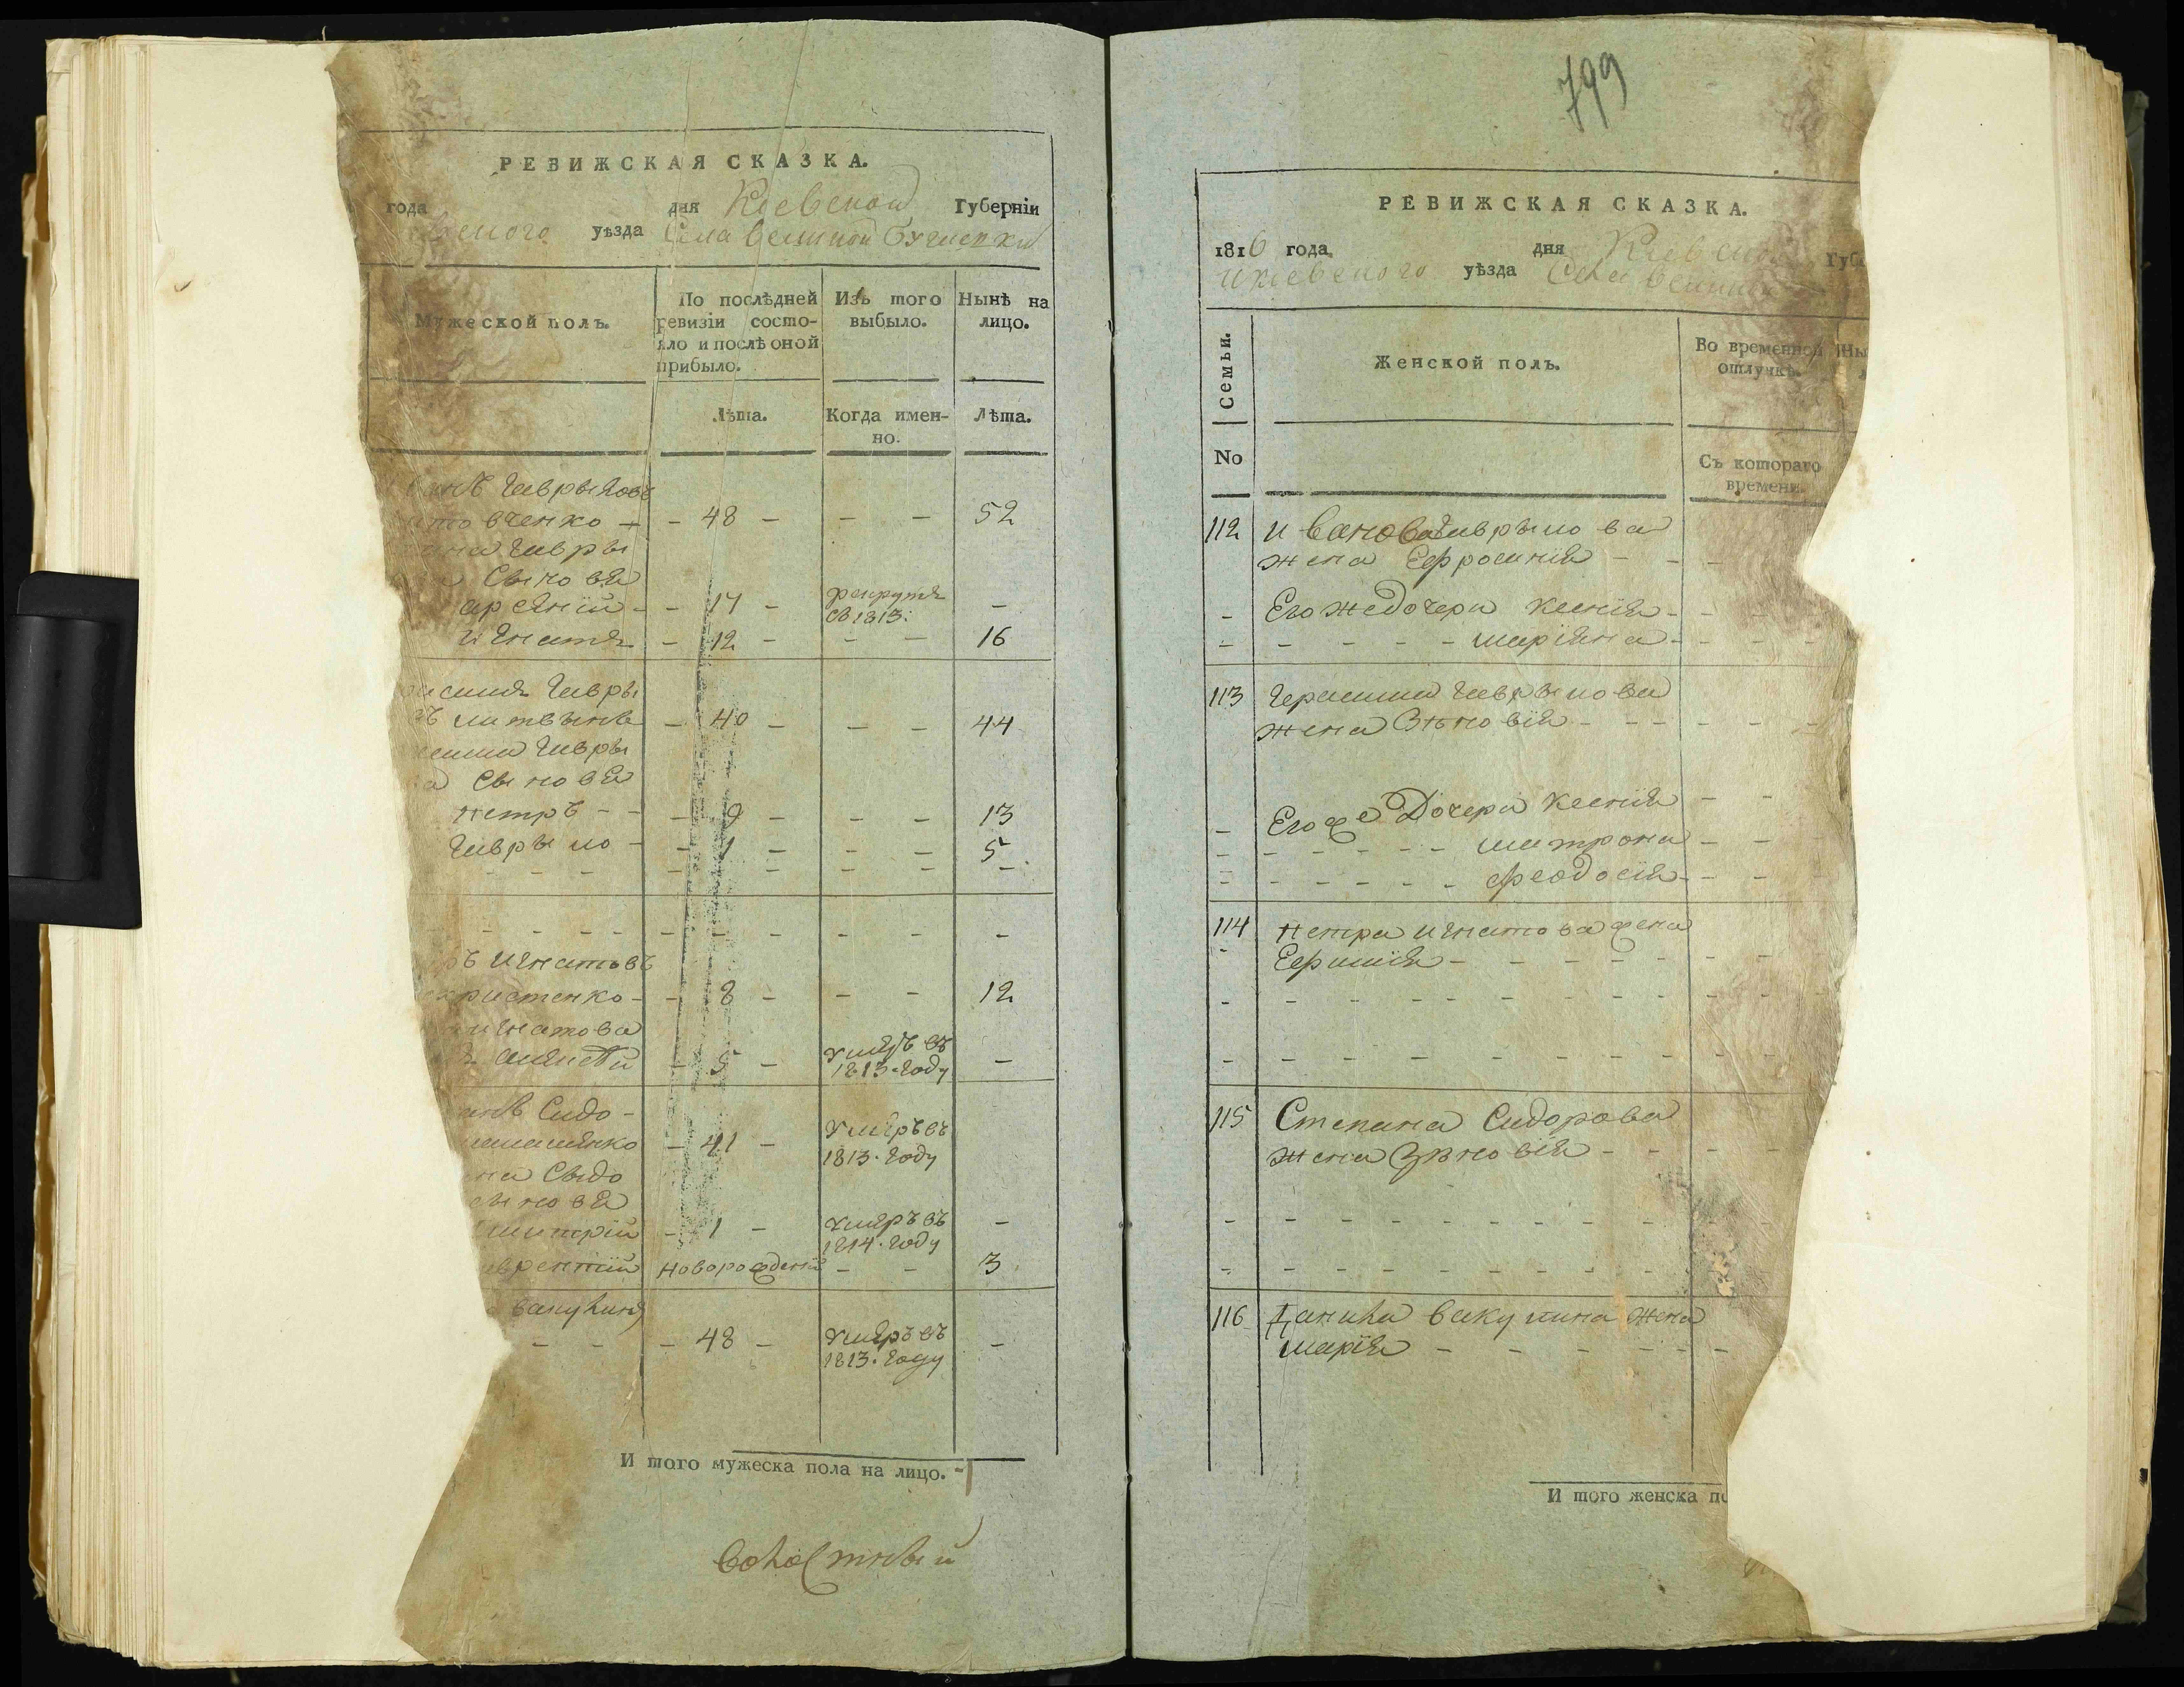 РЕВИЖСКАЯ СКАЗКА.
года дня Киевской Губерніи
вского уѣзда Села Великой Бугаевки
Мужеской полъ.
По послѣдней ревизіи состо-
яло и послѣ оной
прибыло.
Изъ того
выбыло.
Нынѣ на
лицо.
Лѣта.
Когда имен-
но.
Лѣта.
ванъ Гаврыловъ
товченко - 48 - - - 52
ана Гавры
Сыновя
арсяній - 17 - рекрутъ
въ 1813: -
игнатъ - 12 - - - 16
расимъ Гавры
въ литвынъ - 40 - - - 44
симa Гавры
а Сыновя
петръ - - 9 - - - 13
Гаврыло - 1 - - - 5
ръ игнатовъ
христенко - 8 - - - 12
игнатова
алексѣй - 5 - умеръ въ
1813. году -
анъ Сидо-
машенко - 41 - умеръ въ
1813. году
на Сыдо
сынове
митрій - 1 - умеръ въ
1814. году -
аврентій новорожденій - - 3
вакулинъ
- - - 48 - умеръ въ
1813. году -
И того мужеска пола на лицо. -
Волостный
799
РЕВИЖСКАЯ СКАЗКА.
1816 года дня Киевской Губе
и киевского уѣзда Села Велик
Семьи.
Женской полъ.
Во временной
отлучкѣ.
Ны
No
Съ котораго
времени.
112 ивано­ва Гаврылова
жена Ефросинія - - -
- Его же дочери Ксенія - - - -
- - - - - маріяна - - - -
113 Герасима Гаврылова
жена Зѣновія - - - - - -
- Его же Дочери Ксенія - -
- - - - - - матрона - - -
- - - - - - феодосія - - -
114 петра игнатова жена
Ефимія - - - - - - - -
115 Степана Сидорова
жена Зѣновія - - - - -
116 Данила вакулина жена
марія - - - - - - -
И того женска по